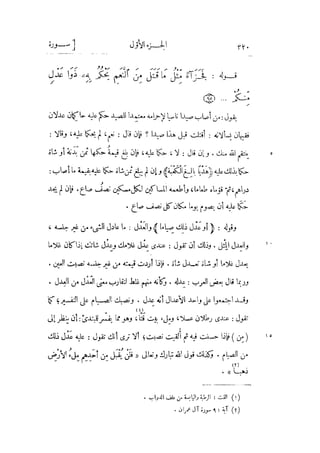 ٣٢٠ الجـزء الأوّل [ ســـورة
قـــوله : فَجَزَآءٌ مِّثْلُ مَا قَتَلَ مِنَ ٱلنَّعَمِ يَحْكُمُ بِهِۦ ذَوَا عَدْلٍ
مِّنكُمْ ... ٩٥
يقول : من أصاب صيدا ناسيا لإحرامه معتمدا للصيد حكم عليه حاكمان عدلان
فقيهان يسألانه : أقتلت قبل هذا صيدا ؟ فإن قال : نعم ، لم يحكما عليه ، وقالا :
ينتقم الله منك . و إن قال : لا ، حكما عليه ، فإن بلغ قيمة حكمها ثمن بَدَنة أو شاة
حكما بذلك عليه ﴿ هَدْيًا بَالِغَ الْكَعْبَةِ ﴾ و إن لم يبلغ ثمن شاة حكما عليه بقيمة ما أصاب :
دراهم، ثم قوّماه طعاما، وأطعمه المساكين لكل مسكين نصف صاع . فإن لم يجد
حكما عليه أن يصوم يوما مكان كل نصف صاع .
وقوله : ﴿ أو عَدْلُ ذٰلك صِياما ﴾ والعَدْل : ما عادل الشىء من غير جنسه ،
والعِدل المِثْل . وذلك أن تقول : عندى عِدْل غلامك وعِدْل شاتك إذا كان غلاما
يعدل غلاما أو شاة تعـدل شاة . فإذا أردت قيمته من غير جنسه نصبت العين .
وربما قال بعض العرب : عِدله . وكأنه منهم غلط لتقارب معنى العَدْل من العِدل .
وقـد اجتمعوا على واحد الأعدال أنه عِدل . ونصبك الصـيام على التفسير ؛ كما
تقول : عندى رطلان عسلا ، وملء بيت قَتًّا(١) ، وهو مما يفسَّر للمبتدئ : أن ينظر إلى
( مِن ) فإذا حسنت فيه ثم أُلقيت نصبت ؛ ألا ترى أنك تقول : عليه عدل ذلك
من الصيام . وكذلك قول الله تبارك وتعالى « فَلَن يُقْبَلَ مِنْ أَحَدِهِم مِلْءُ الأرْضِ
ذهبا(٢) » .
(٢) آية : ٩١ سورة آل عمران .